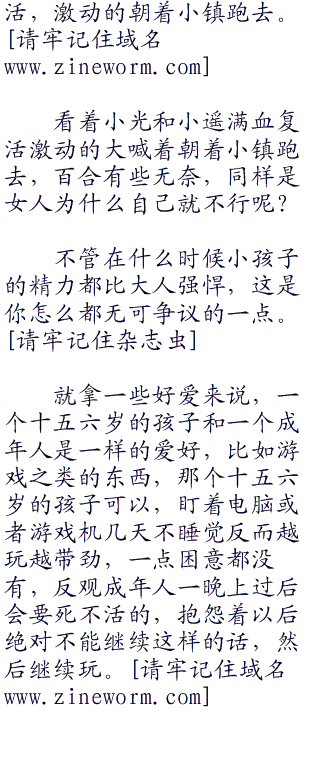 活，激动的朝着小镇跑去。
[请牢记住域名
www.zineworm.com]
看着小光和小遥满血复
活激动的大喊着朝着小镇跑
去，百合有些无奈，同样是
女人为什么自己就不行呢？
不管在什么时候小孩子
的精力都比大人强悍，这是
你怎么都无可争议的一点。
[请牢记住杂志虫]
就拿一些好爱来说，一
个十五六岁的孩子和一个成
年人是一样的爱好，比如游
戏之类的东西，那个十五六
岁的孩子可以，盯着电脑或
者游戏机几天不睡觉反而越
玩越带劲，一点困意都没
有，反观成年人一晚上过后
会要死不活的，抱怨着以后
绝对不能继续这样的话，然
后继续玩。[请牢记住域名
www.zineworm.com]